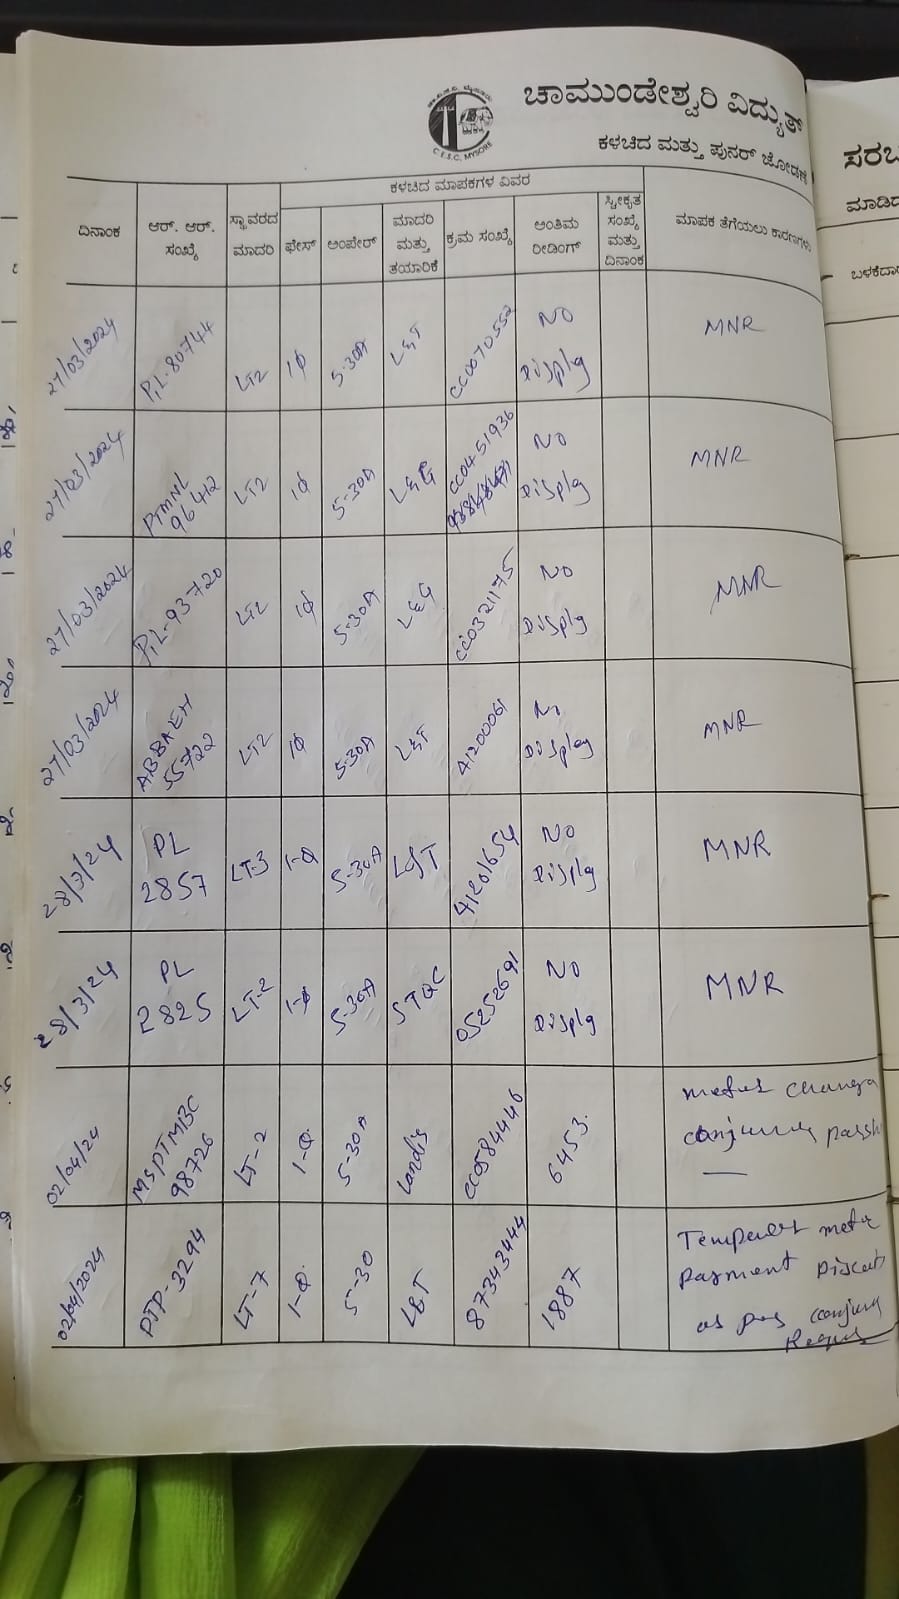 ಚಾಮುಂಡೇಶ್ವರಿ ವಿದ್ಯುತ್
C.E.S.C. MYSORE
ಕಳಚಿದ ಮತ್ತು ಪುನರ್ ಜೋಡಣೆ
ಸರಬ
ಮಾಡಿದ
ಬಳಕೆದಾ
ಕಳಚಿದ ಮಾಪಕಗಳ ವಿವರ
ದಿನಾಂಕ ಆರ್. ಆರ್. ಸಂಖ್ಯೆ ಸ್ಥಾವರದ ಮಾದರಿ ಫೇಸ್ ಅಂಪೇರ್ ಮಾದರಿ ಮತ್ತು ತಯಾರಿಕೆ ಕ್ರಮ ಸಂಖ್ಯೆ ಅಂತಿಮ ರೀಡಿಂಗ್ ಸ್ವೀಕೃತ ಸಂಖ್ಯೆ ಮತ್ತು ದಿನಾಂಕ ಮಾಪಕ ತೆಗೆಯಲು ಕಾರಣಗಳು
27/03/2024 P,L-80744 LT2 1Φ 5-30A L&T CC0070552 NO Display MNR
27/03/2024 PTMNL 96412 LT2 1Φ 5-30A L&G CC0451936 NO Display MNR
27/03/2024 P,L-93720 LT2 1Φ 5-30A L&G CC0321175 NO Display MNR
27/03/2024 ABBAEH 55722 LT2 1Φ 5-30A L&T 41200061 No Display MNR
28/3/24 PL 2857 LT-3 1-Φ 5-30A L&T 41201654 NO Display MNR
28/3/24 PL 2825 LT-2 1-Φ 5-30A STQC 05252691 NO Display MNR
02/04/24 MSPTMBC 98726 LT-2 1-Φ 5-30A Landis CC0584446 6453.
02/04/2024 PTP-3294 LT-7 1-Φ 5-30 L&T 87343444 1887 payment as per